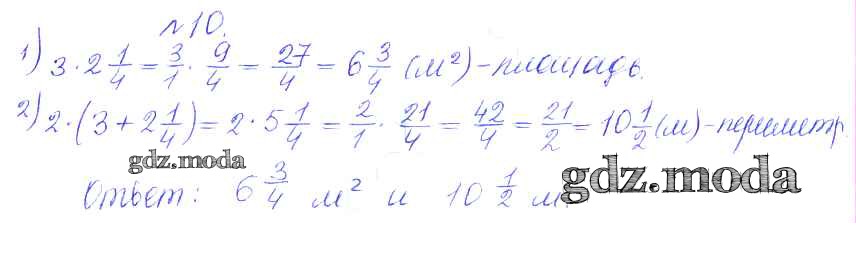 №10.
1) 3 · 2 1/4 = 3/1 · 9/4 = 27/4 = 6 3/4 (м²) - площадь.
2) 2 · (3 + 2 1/4) = 2 · 5 1/4 = 2/1 · 21/4 = 42/4 = 21/2 = 10 1/2 (м) - периметр.
gdz.moda
Ответ: 6 3/4 м² и 10 1/2 м.
gdz.moda